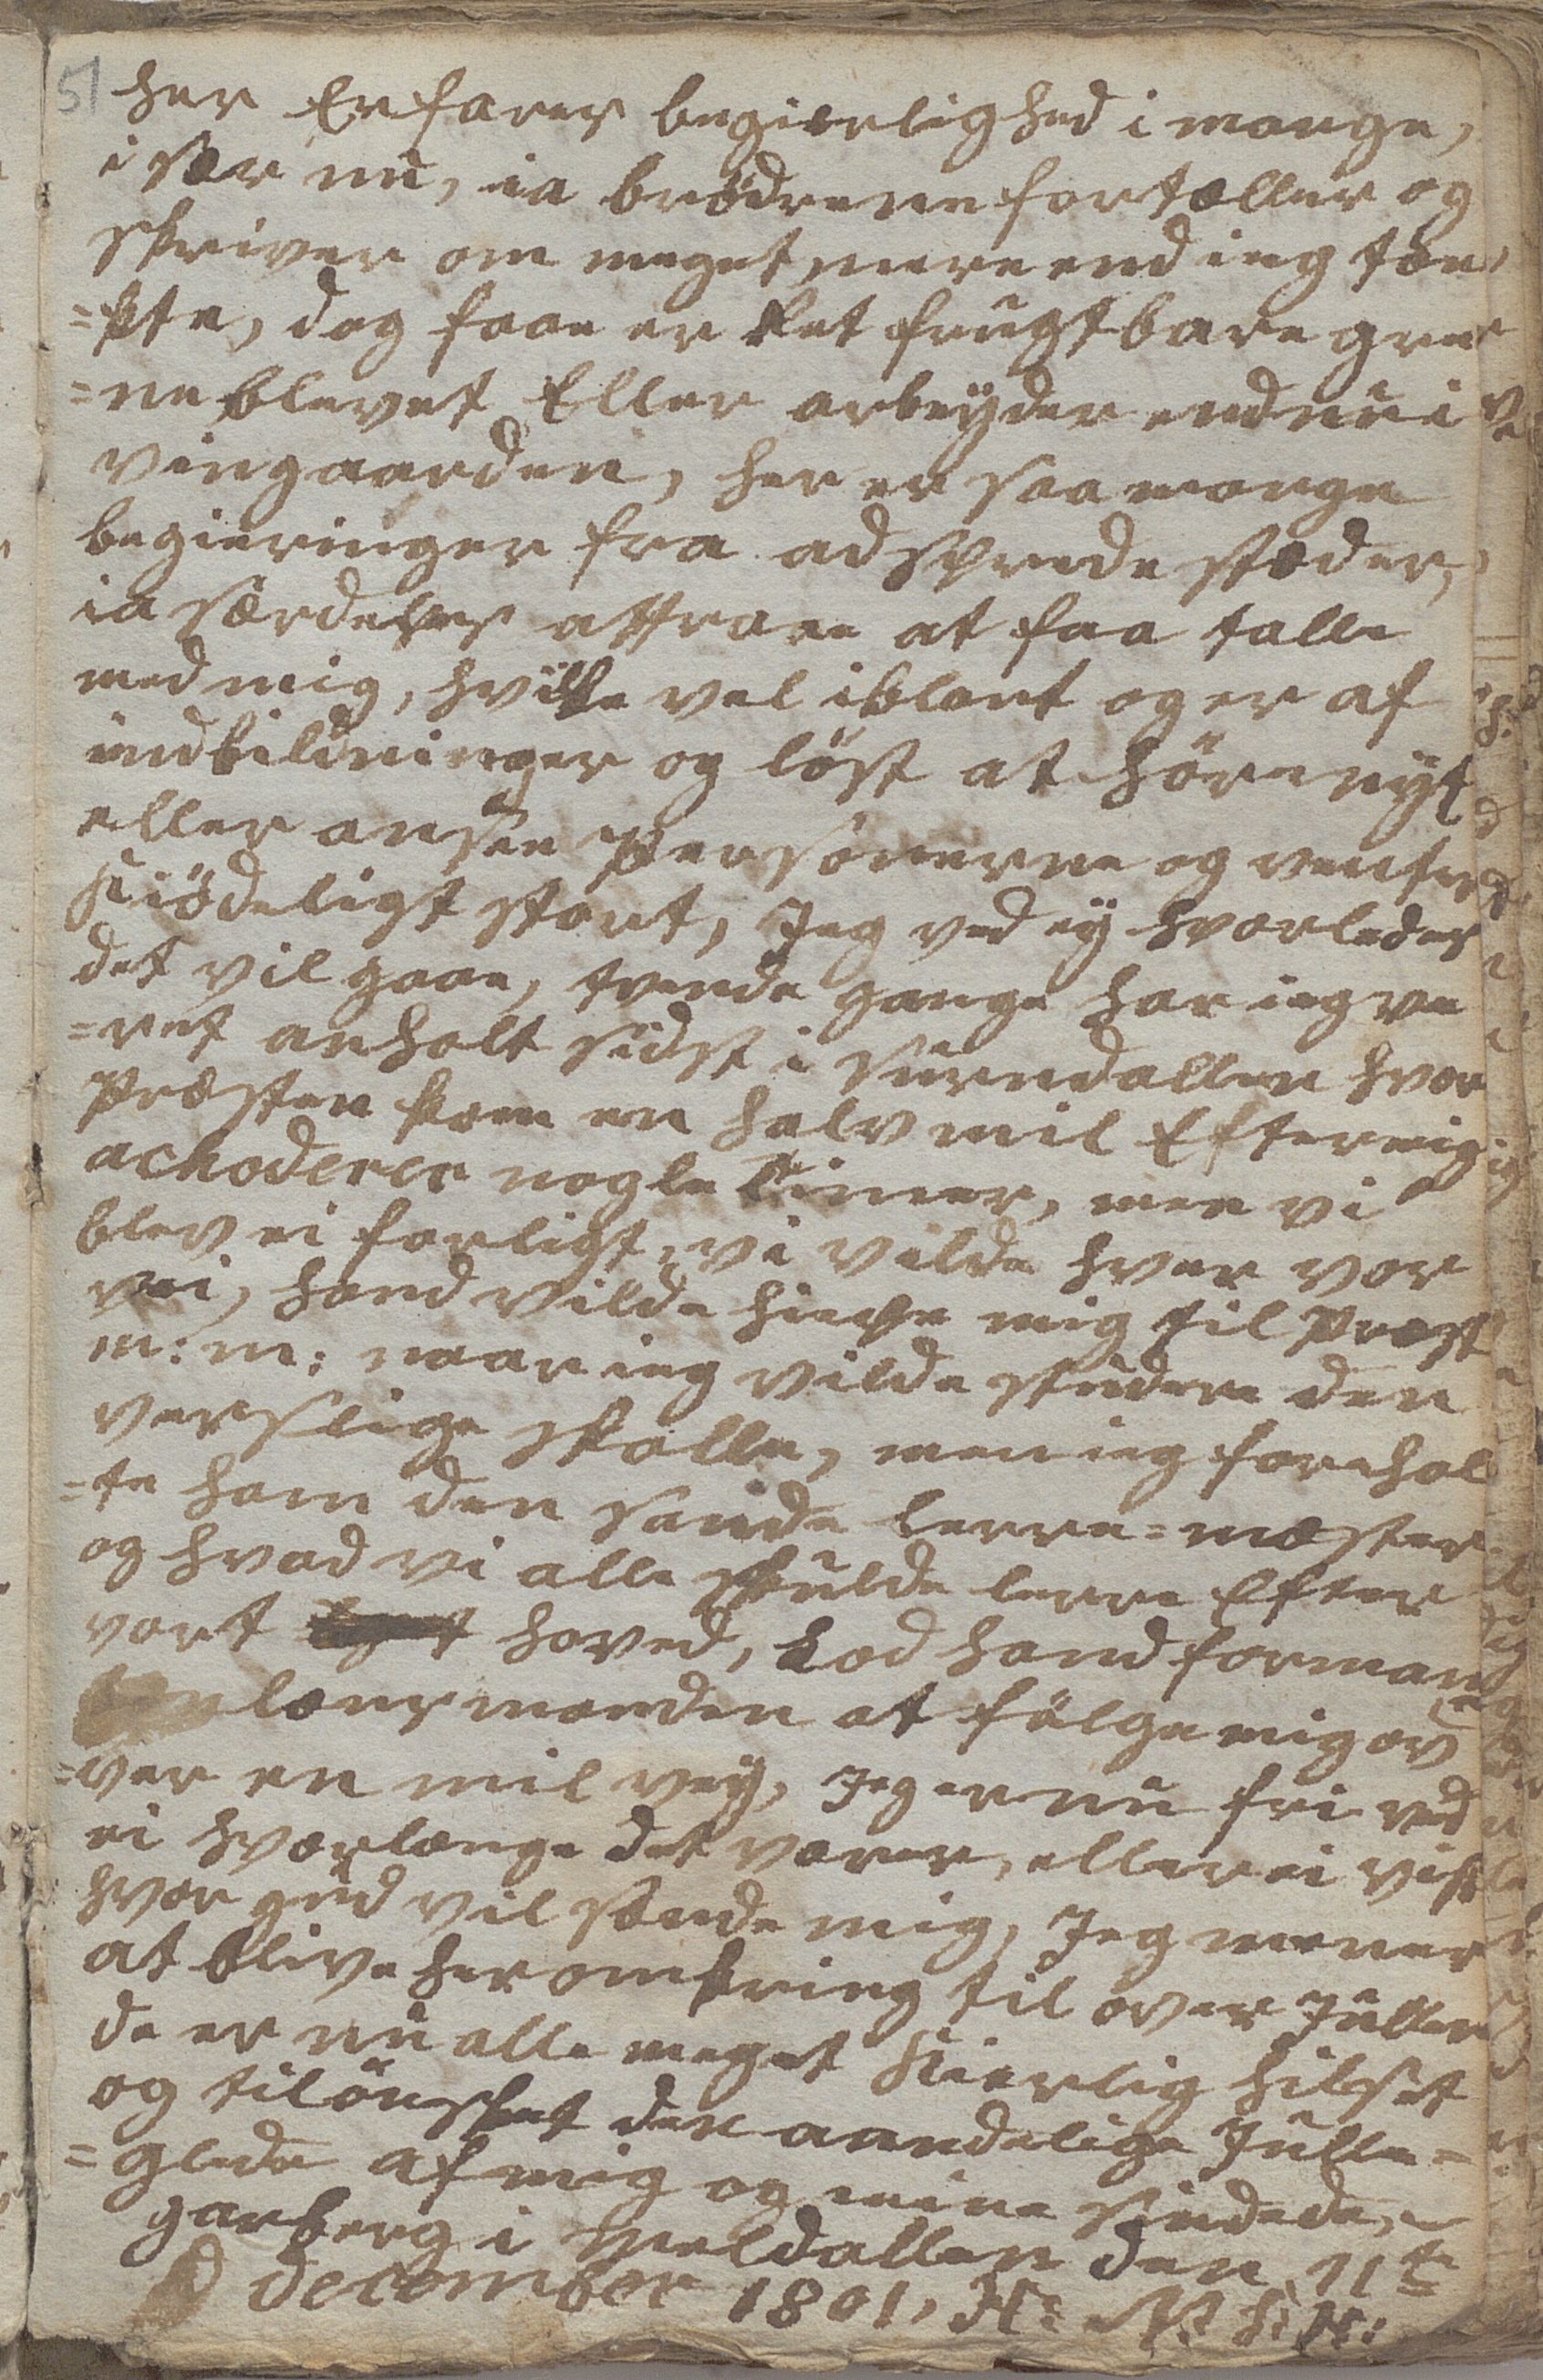 51
her Erfares begierlighed i mange,
i sær nu, ia brødrene fortæller og
skriver om meget mere end ieg tæn,
=kte, dog faae er ret frugtbare gre
=ne blevet Eller arbeÿder endnu i
vingaarden, her er saa mange
begieringer fra adsprede stæder,
ia særdeles attraae at faa talle
med mig, hvilke vel iblant og er af
indbildninger og løst at høre nÿt
eller ansee Personerne og
Kiødeligt stort, Jeg ved eÿ hvorledes
det vil gaae, tvende gange har ieg ve
=ret anholt sidst i Surendallen hvor
Præsten kom en halv mil Efter mig
achoderer nogle timer, men vi
blev ei forligt, vi vilde hver vor
vei, hand vilde hielpe mig til Præst
m: m: naar ieg vilde studere den
verslige skolle, men ieg forehol
=te ham den sande lerre=mæster
og hvad vi alle skulde lerre Efter
vort hoved, Lod hand forman
lænsmanden at følge mig ov
=ver en mil veÿ, Jeg er nu fri ved
ei hvorlænge det varer, eller ei vist
hvor gud vil sende mig, Jeg mener
at blive her omkring til over Jullen
da er nu alle meget Kierlig hilset
og tilønsket den aandelige Julle=
=glede af mig og mine sindede,
garberg i Meldallen den 11te
december 1801, H: N: H: